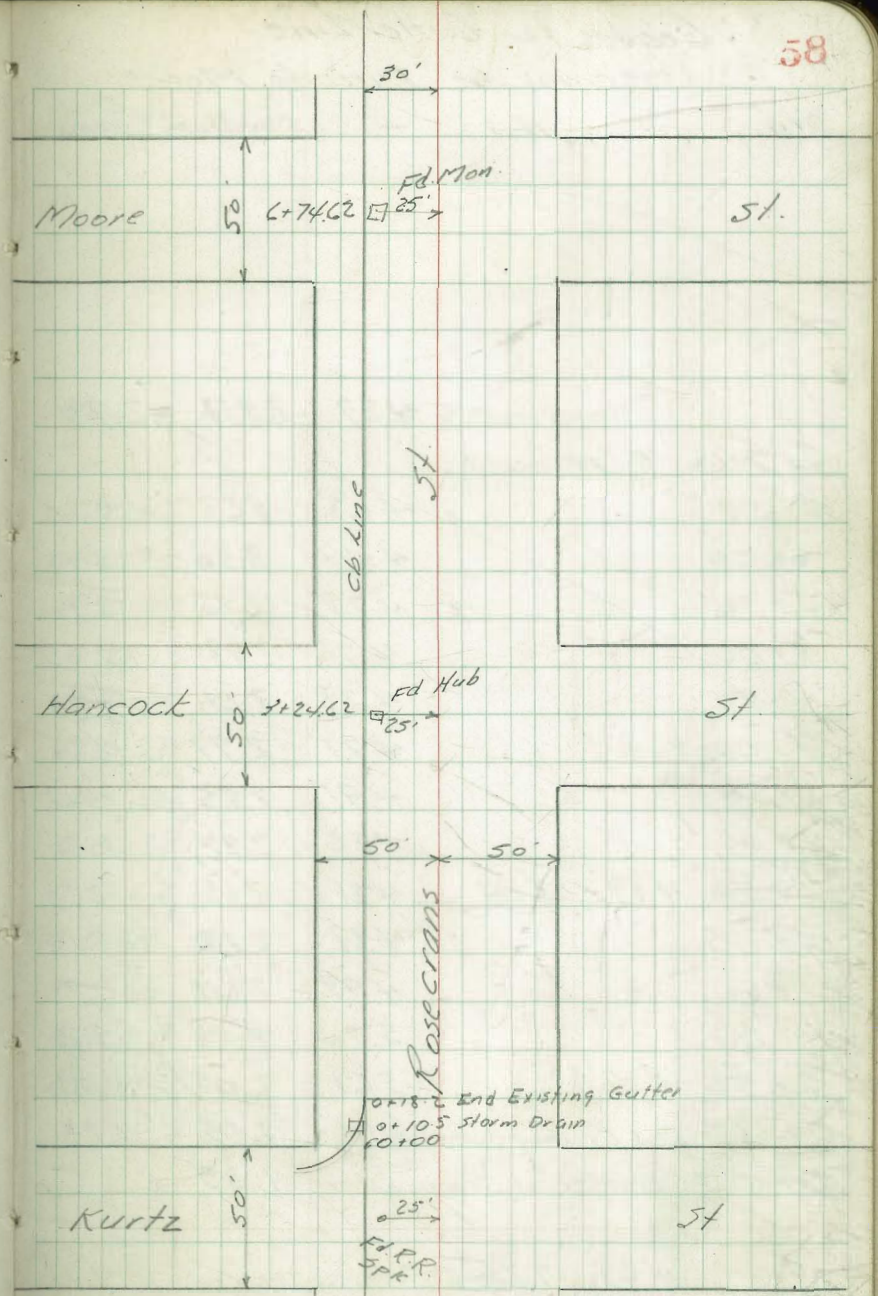 58
30'
Fd. Mon.
Moore 50' 6+74.62 25' St.
St
cb Line
Fd Hub
Hancock 50' 3+24.62 25' St.
50' 50'
Rosecrans
0+18.2 End Existing Gutter
0+10.5 Storm Drain
0+00
Kurtz 50' 25' St
Fd. R.R.
Spk